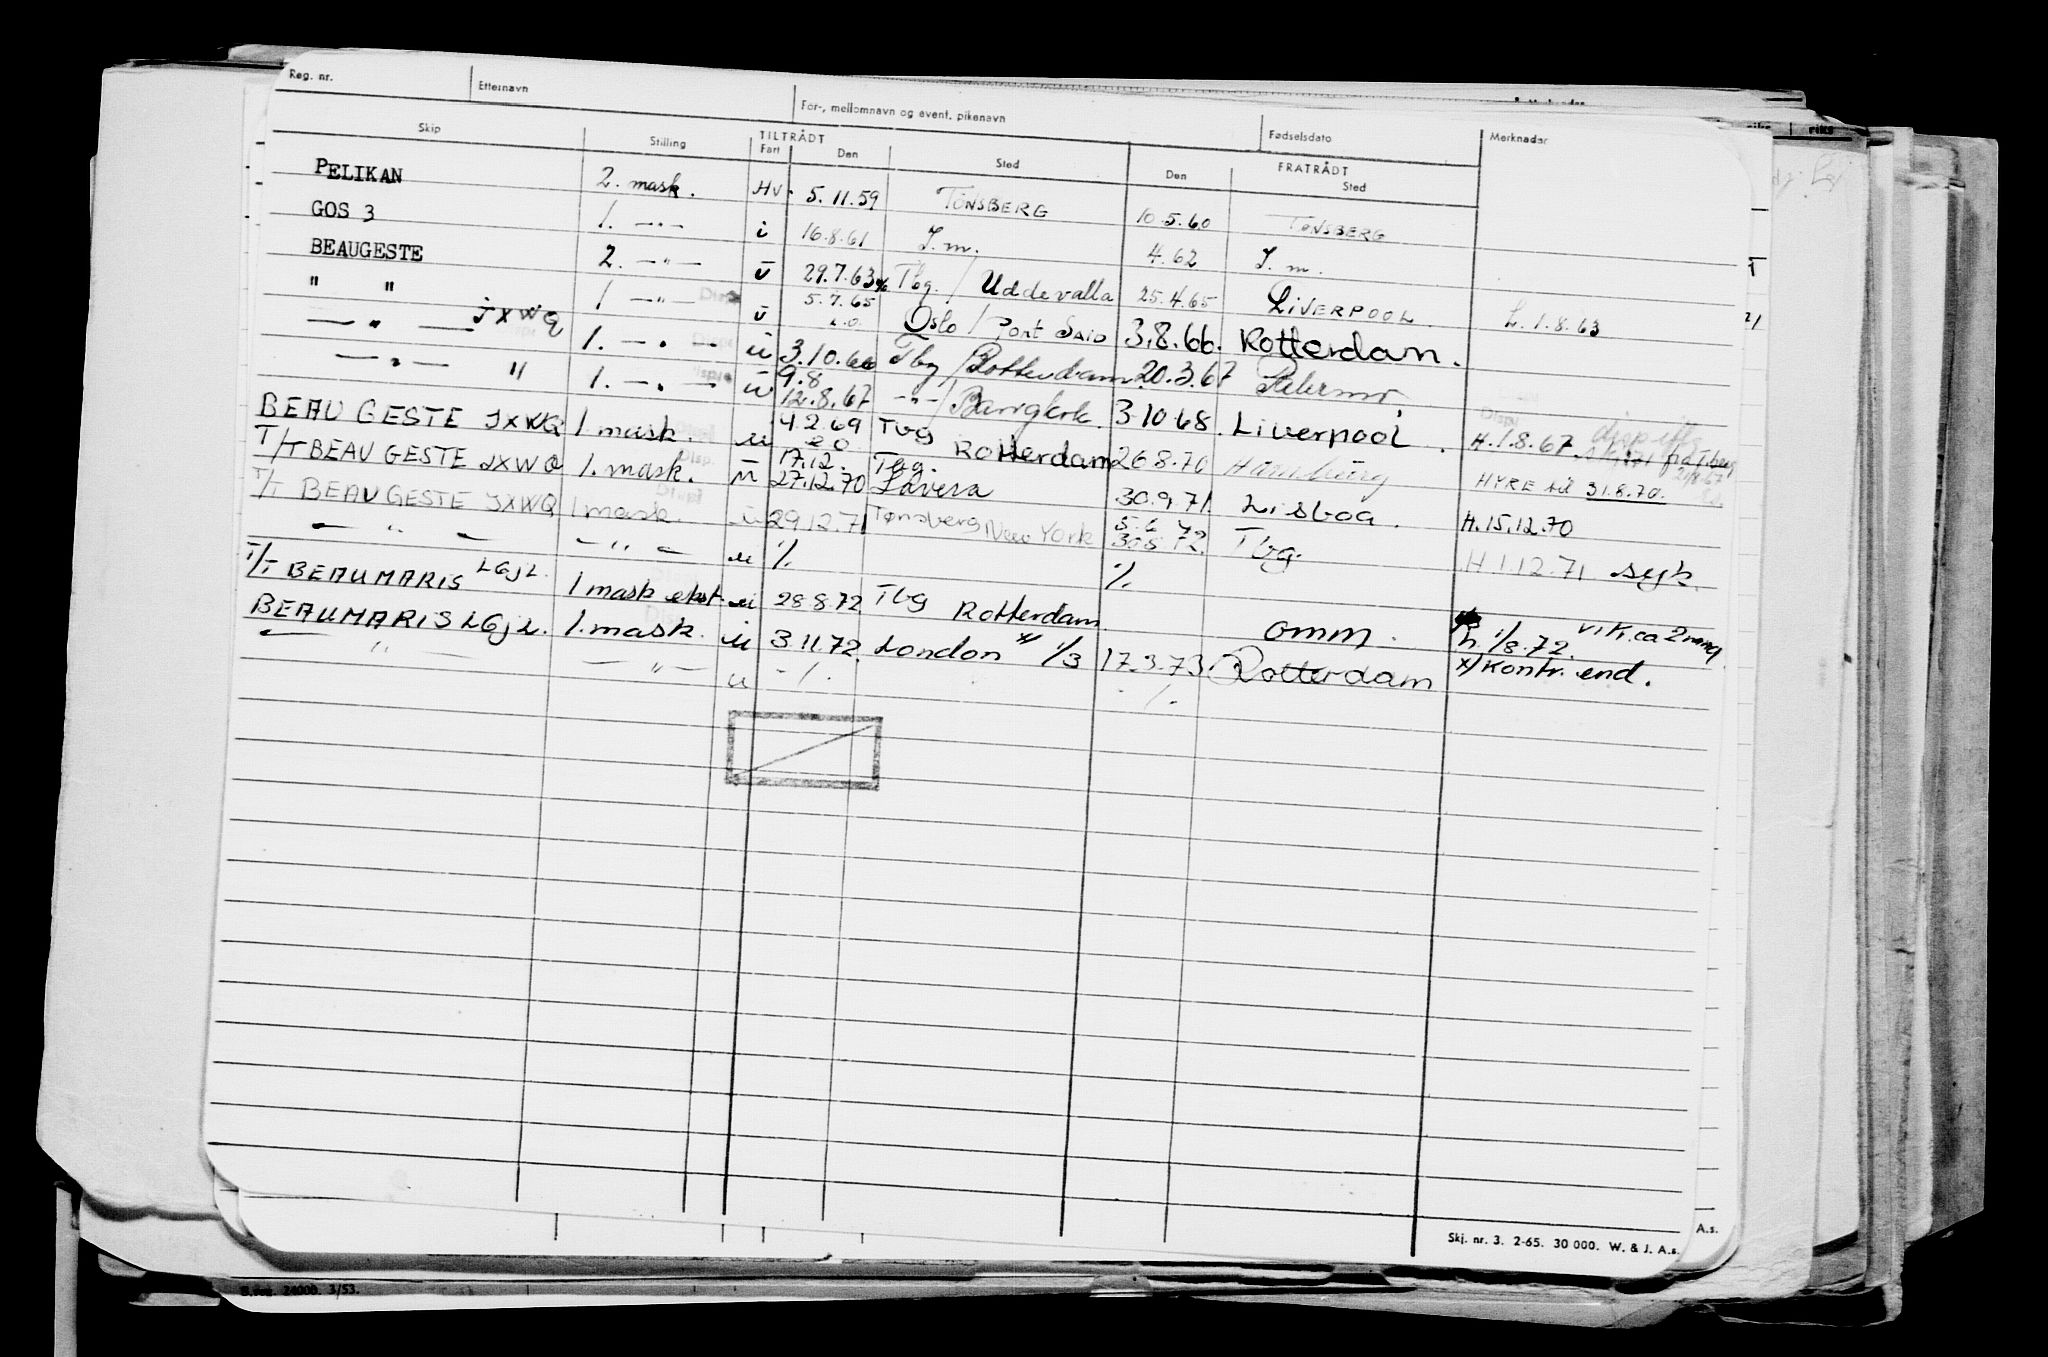 Reg. nr. Etternavn For-, mellomnavn og event. pikenavn Fødselsdato Merknader
Skip Stilling TILTRÅDT Fart Den Sted FRATRÅDT Den Sted
PELIKAN 2. mask. Hv. 5.11.59 TØNSBERG 10.5.60 TØNSBERG
GOS 3 1. —"— i 16.8.61 S.m. 4.62 S.m.
BEAUGESTE 2. —"— ū 29.7.63 Tbg. / Uddevalla 25.4.65 LIVERPOOL L.1.8.63
" " 1 —"— ū 5.7.65 Oslo / Port Said 3.8.66. Rotterdam.
—"— JXWQ 1. —"— ū 3.10.66 Tbg / Rotterdam 20.3.67 Palermo
—"— " 1. —"— ū 9.8 12.8.67 —"— / Bangkok 3 10 68. Liverpool. H.1.8.67
BEAU GESTE JXWQ 1 mask. u 4.2.69 Tbg Rotterdam 26 8.70 Hamburg HYRE til 31.8.70.
T/T BEAU GESTE JXWQ 1. mask. u 17.12. 27.12.70 Tbg. Lavera 30.9.71. Lisboa. H.15.12.70
T/T BEAU GESTE JXWQ 1 mask. u 29.12.71 Tønsberg New York 5.6 72 Tbg. H 1.12.71 syk.
— " — — " — u % %
T/T BEAUMARIS LGJL. 1 mask ekst. u 28.8.72 Tbg Rotterdam omm. h. 1/8.72. vik. ca 2 mnd
BEAUMARIS LGJL. 1. mask. u 3.11.72. London x/ 1/3 17.3.73. Rotterdam x/ Kontr. end.
— " — — " — u -%. -%.
Skj. nr. 3. 2-65. 30 000. W. & J. A.s.
A.s.
24000. 3/53.